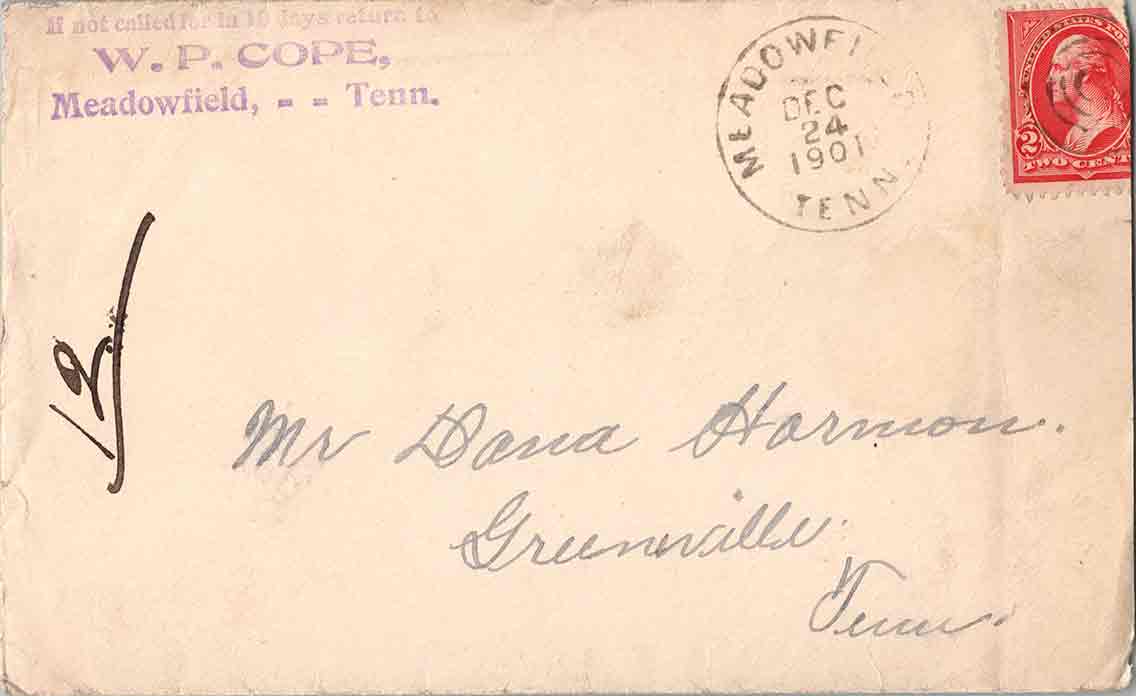 If not called for in 10 days return to
W. P. COPE,
Meadowfield, - - Tenn.
MEADOWFI
DEC
24
1901
TENN.
UNITED STATES POS
2
TWO CENT
12
Mr Dana Harmon.
Greeneville
Tenn.